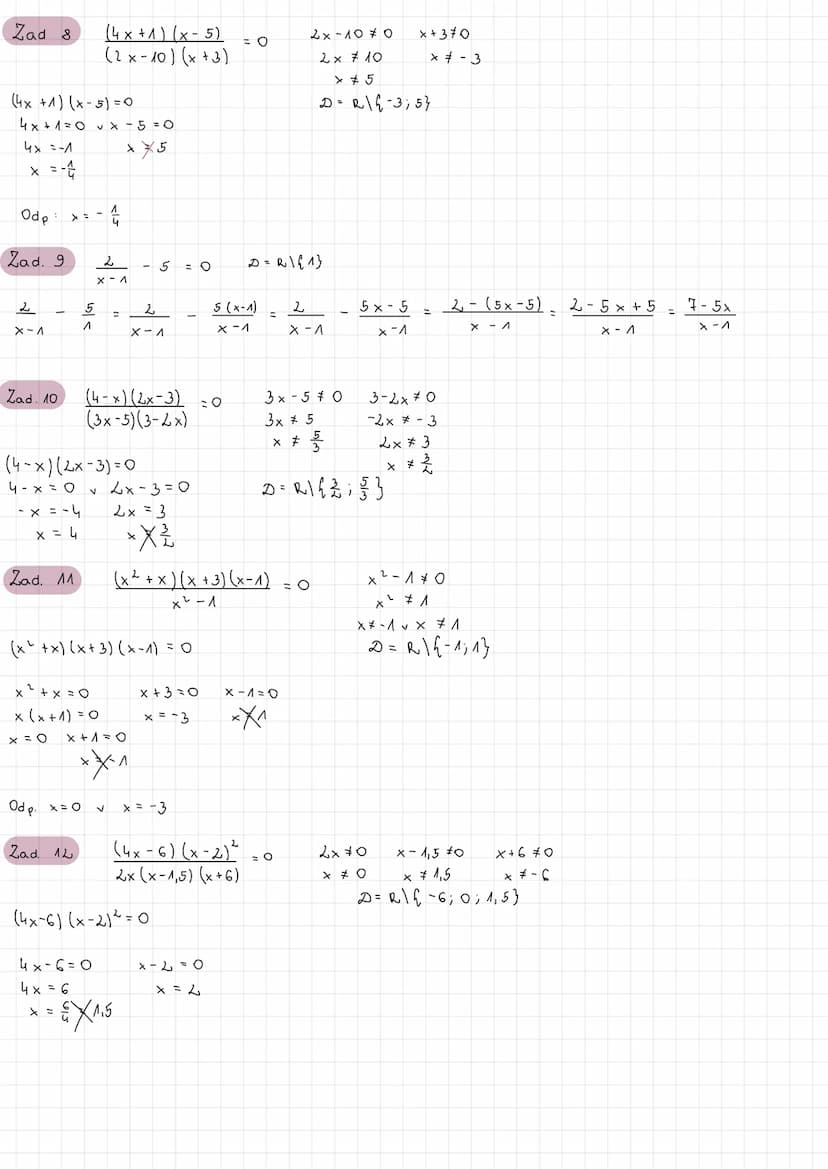 Zad 8 (4x+1)(x-5)/(2x-10)(x+3) = 0 2x-10≠0 x+3≠0
2x≠10 x≠-3
x≠5
(4x+1)(x-5)=0 D=R\{-3;5}
4x+1=0 ∨ x-5=0
4x=-1 x=5
x=-1/4
Odp: x=-1/4
Zad. 9 2/(x-1) - 5 = 0 D=R\{1}
2/(x-1) - 5/1 = 2/(x-1) - 5(x-1)/(x-1) = 2/(x-1) - (5x-5)/(x-1) = (2-(5x-5))/(x-1) = (2-5x+5)/(x-1) = (7-5x)/(x-1)
Zad. 10 (4-x)(2x-3)/(3x-5)(3-2x) = 0 3x-5≠0 3-2x≠0
3x≠5 -2x≠-3
x≠5/3 2x≠3
x≠3/2
(4-x)(2x-3)=0
4-x=0 ∨ 2x-3=0 D=R\{3/2;5/3}
-x=-4 2x=3
x=4 x=3/2
Zad. 11 (x²+x)(x+3)(x-1)/(x²-1) = 0 x²-1≠0
x²≠1
x≠-1 ∨ x≠1
(x²+x)(x+3)(x-1)=0 D=R\{-1;1}
x²+x=0 x+3=0 x-1=0
x(x+1)=0 x=-3 x=1
x=0 x+1=0
x=-1
Odp. x=0 ∨ x=-3
Zad. 12 (4x-6)(x-2)²/2x(x-1,5)(x+6) = 0 2x≠0 x-1,5≠0 x+6≠0
x≠0 x≠1,5 x≠-6
D=R\{-6;0;1,5}
(4x-6)(x-2)²=0
4x-6=0 x-2=0
4x=6 x=2
x=6/4=1,5